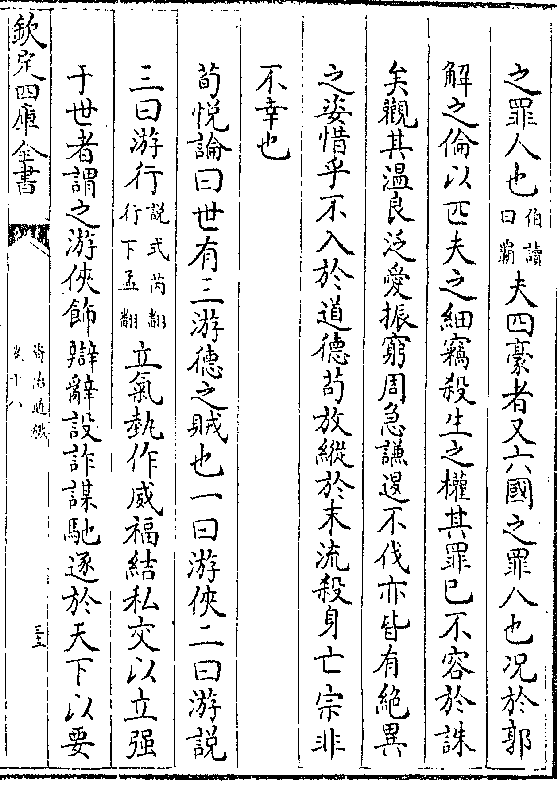 之罪人也伯讀曰霸夫四豪者又六國之罪人也况於郭
解之倫以匹夫之細竊殺生之權其罪已不容於誅
矣觀其溫良泛愛振窮周急謙退不伐亦皆有絶異
之姿惜乎不入於道德茍放縱於末流殺身亡宗非
不幸也
荀悦論曰世有三游德之賊也一曰游俠二曰游說
三曰游行說式芮翻行下孟翻立氣埶作威福結私交以立强
于世者謂之游俠飾辯辭設詐謀馳逐於天下以要
欽定四庫全書
資治通鑑
卷十八